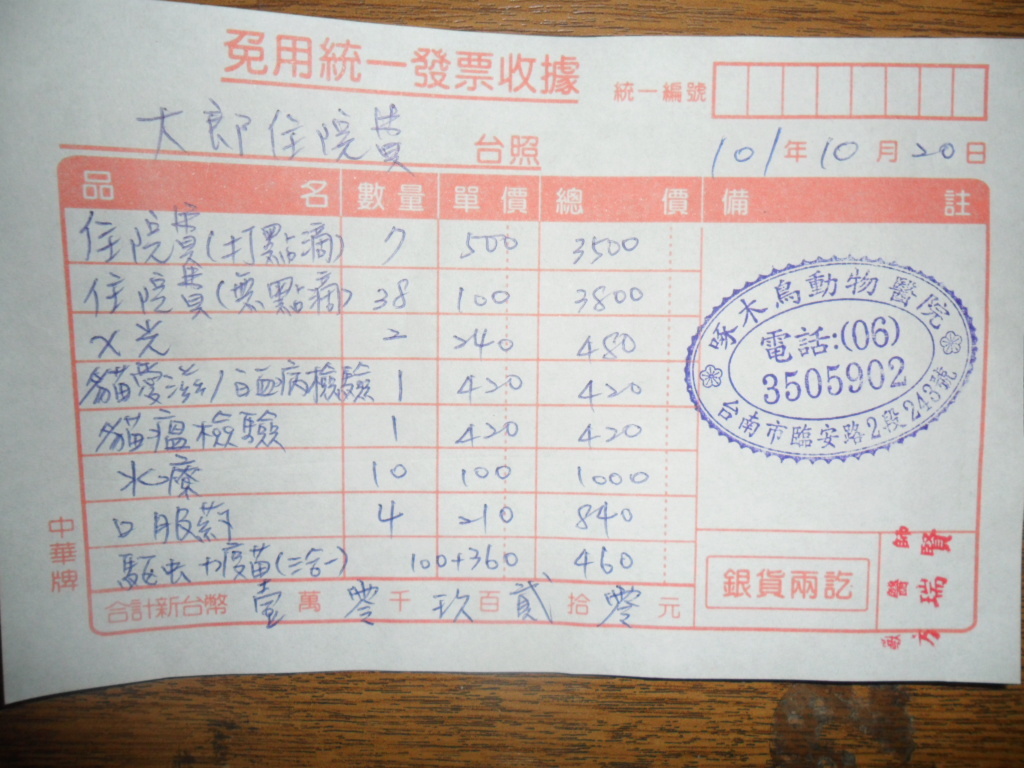 免用統一發票收據
統一編號
太郎住院費 台照
101年10月20日
品名 數量 單價 總價 備註
住院費(打點滴) 7 500 3500
住院費(無點滴) 38 100 3800
X光 2 240 480
貓愛滋/白血病檢驗 1 420 420
貓瘟檢驗 1 420 420
水療 10 100 1000
口服葯 4 210 840
驅虫+疫苗(三合一) 100+360 460
合計新台幣 壹萬零千玖百貳拾零元
啄木鳥動物醫院
電話:(06)
3505902
台南市臨安路2段243號
銀貨兩訖
中華牌
醫師
瑞賢